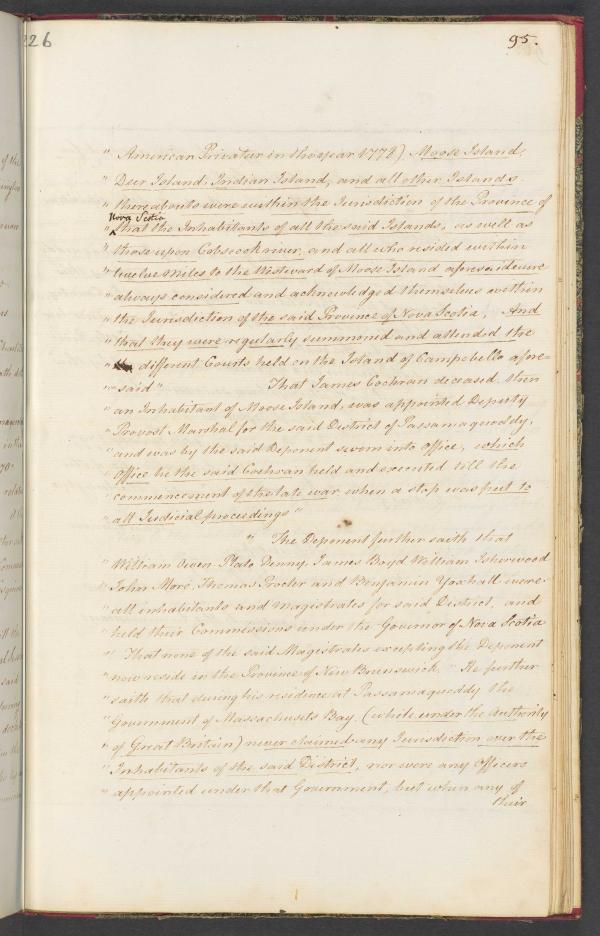 226
95.
" American Privateer in the year 1778) Moose Island,
" Deer Island, Indian Island, and all other Islands
" thereabouts were within the Jurisdiction of the Province of
Nova Scotia
" that the Inhabitants of all the said Islands, as well as
" those upon Cobscook river, and all who resided within
" twelve miles to the Westward of Moose Island aforesaid were
" always considered and acknowledged themselves within
" the Jurisdiction of the said Province of Nova Scotia, And
" that they were regularly summoned and attended the
" different Courts held on the Island of Campobello afore=
" said" That James Cochran deceased, then
" an Inhabitant of Moose Island, was appointed Deputy
" Provost Marshal for the said District of Passamaquoddy,
" and was by the said Deponent sworn into Office, which
" Office he the said Cochran held and executed till the
" commencement of the late war when a stop was put to
" all Judicial proceedings"
" The Deponent further saith that
" William Owen Plato Denny, James Boyd William Isherwood
" John More, Thomas Procter and Benjamin Yoxhall were
" all inhabitants and magistrates for said District, and
" held their Commissions under the Governor of Nova Scotia
" That none of the said Magistrates excepting the Deponent
" now reside in the Province of New Brunswick. " He further
" saith that during his residence at Passamaquoddy the
" Government of Massachusets Bay, (while under the Authority
" of Great Britain) never claimed any Jurisdiction over the
" Inhabitants of the said District, nor were any Officers
" appointed under that Government, but when any of
their